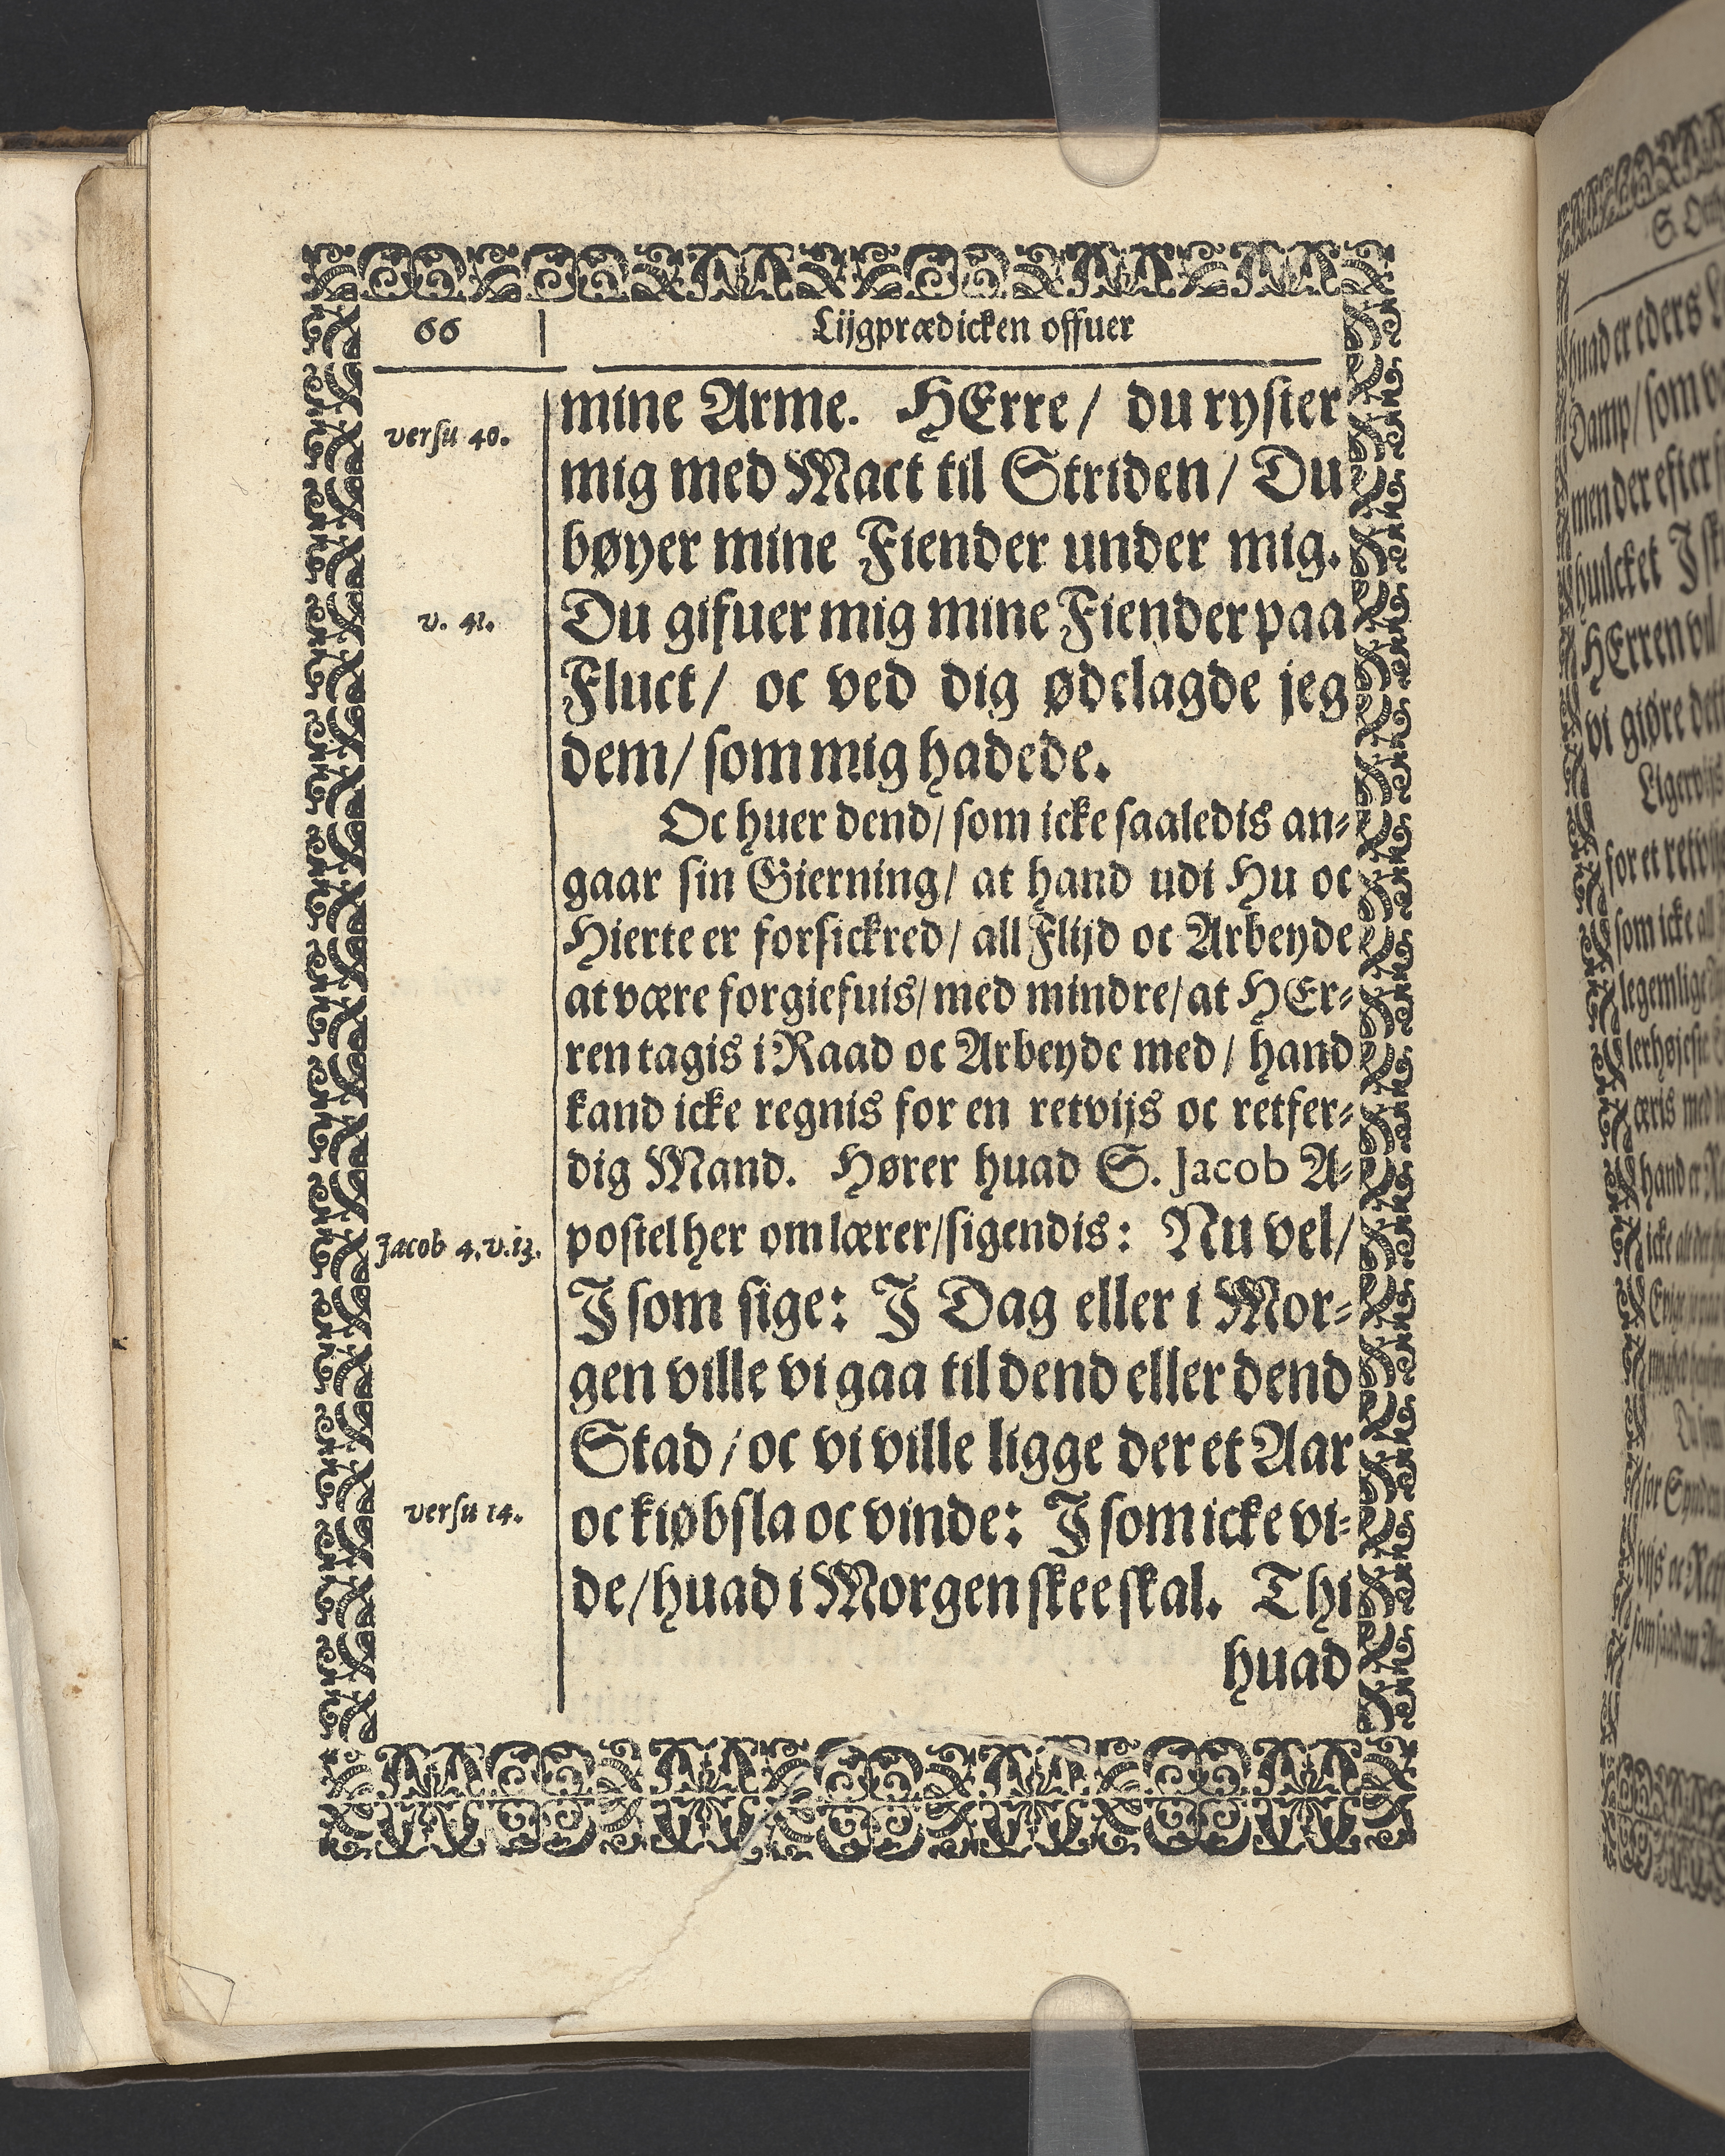 66
Lijgprædicken offuer
versu 40.
mine Arme. HErre/ du ryster
mig med Mact til Striden/ Du
bøyer mine Fiender under mig.
v. 41.
Du gifuer mig mine Fiender paa
Fluct/ oc ved dig ødelagde jeg
dem/ som mig hadede.
Oc huer dend/ som icke saaledis an⸗
gaar sin Gierning/ at hand udi Hu oc
Hierte er forsickred/ all Flijd oc Arbeyde
at være forgiefuis/ med mindre/ at HEr⸗
ren tagis i Raad oc Arbeyde med/ hand
kand icke regnis for en retvijs oc retfer⸗
dig Mand. Hører huad S. Jacob A⸗
Jacob 4. v. 13.
postel her om lærer/ sigendis: Nu vel/
J som sige: J Dag eller i Mor⸗
gen ville vi gaa til dend eller dend
Stad/ oc vi ville ligge der et Aar
versu 14.
oc kiøbsla oc vinde: J som icke vi⸗
de/ huad i Morgen skee skal. Thi
huad
huad er eders
Damp/ som
men der efter
huilcket J
HErren vil/
vi giøre
Ligervijs
for et
som icke all
legemlige
æris med
hand er
icke
for Synden